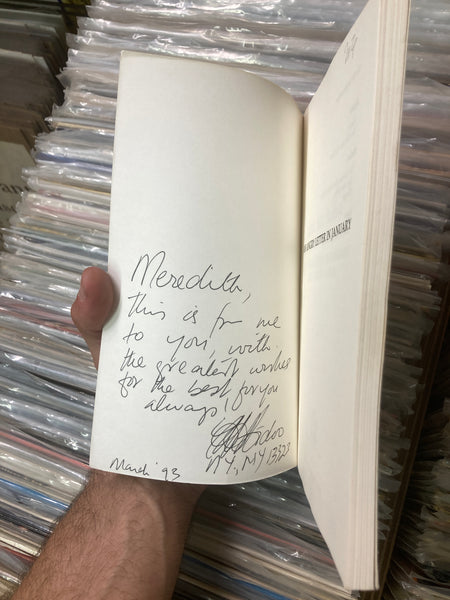 Meredith,
this is from me
to you, with
the greatest wishes
for the best, for you
always!
Aidoo
NY, NY 13323
March '93
ANGRY LETTER IN JANUARY